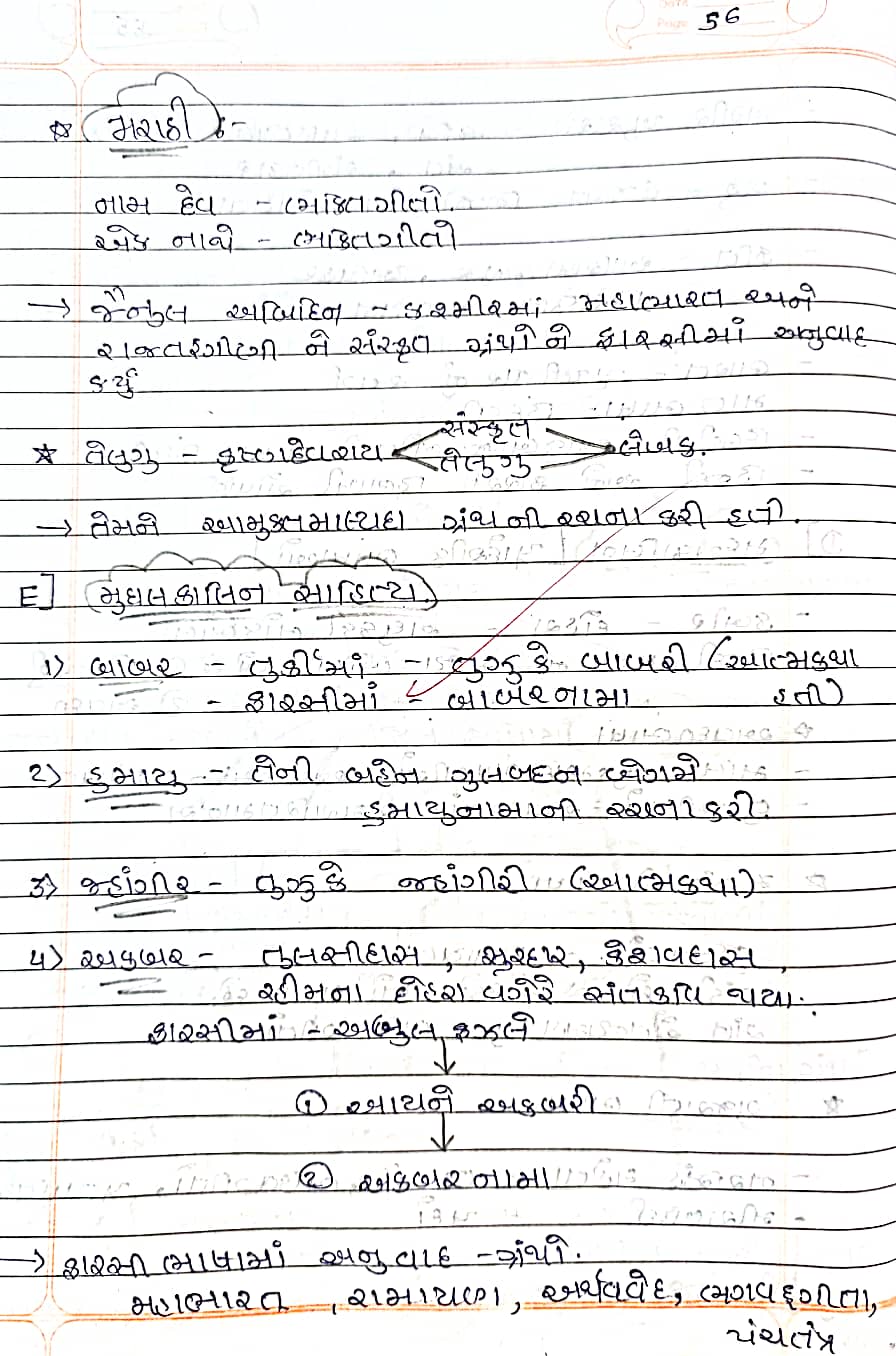 56
☆ મરાઠી :-
નામ દેવ - ભકિતગીતો.
એક નાથે - ભકિતગીતો
→ જૈનુલ અબિદિન - કશ્મીરમાં મહાભારત અને
રાજતરંગીણી ને સંસ્કૃત ગ્રંથો ને ફારસીમાં અનુવાદ
કર્યુ
★ તેલુગુ - કૃષ્ણદેવરાય સંસ્કૃત તેલુગુ લેખક.
→ તેમને આમુકતમાલ્યદા ગ્રંથની રચના કરી હતી.
E] મુઘલકાલિન સાહિત્ય
1) બાબર - તુર્કીમાં - તુઝુકે બાબરી (આત્મકથા
- ફારસીમાં - બાબરનામા હતી)
૨) હુમાયુ - તેની બહેન ગુલબદન બેગમે
હુમાયુનામાની રચના કરી.
3) જહાંગીર - તુઝુકે જહાંગીરી (આત્મકથા)
૪) અકબર - તુલસીદાસ, સુરદાસ, કેશવદાસ,
રહીમના દોહરા વગેરે સંતકવિ થયા.
ફારસીમાં - અબુલ ફઝલે
↓
① આયને અકબરી
↓
② અકબરનામા
→ ફારસી ભાષામાં અનુવાદ - ગ્રંથો.
મહાભારત, રામાયણ, અર્થવવેદ, ભગવદ્દગીતા,
પંચતંત્ર